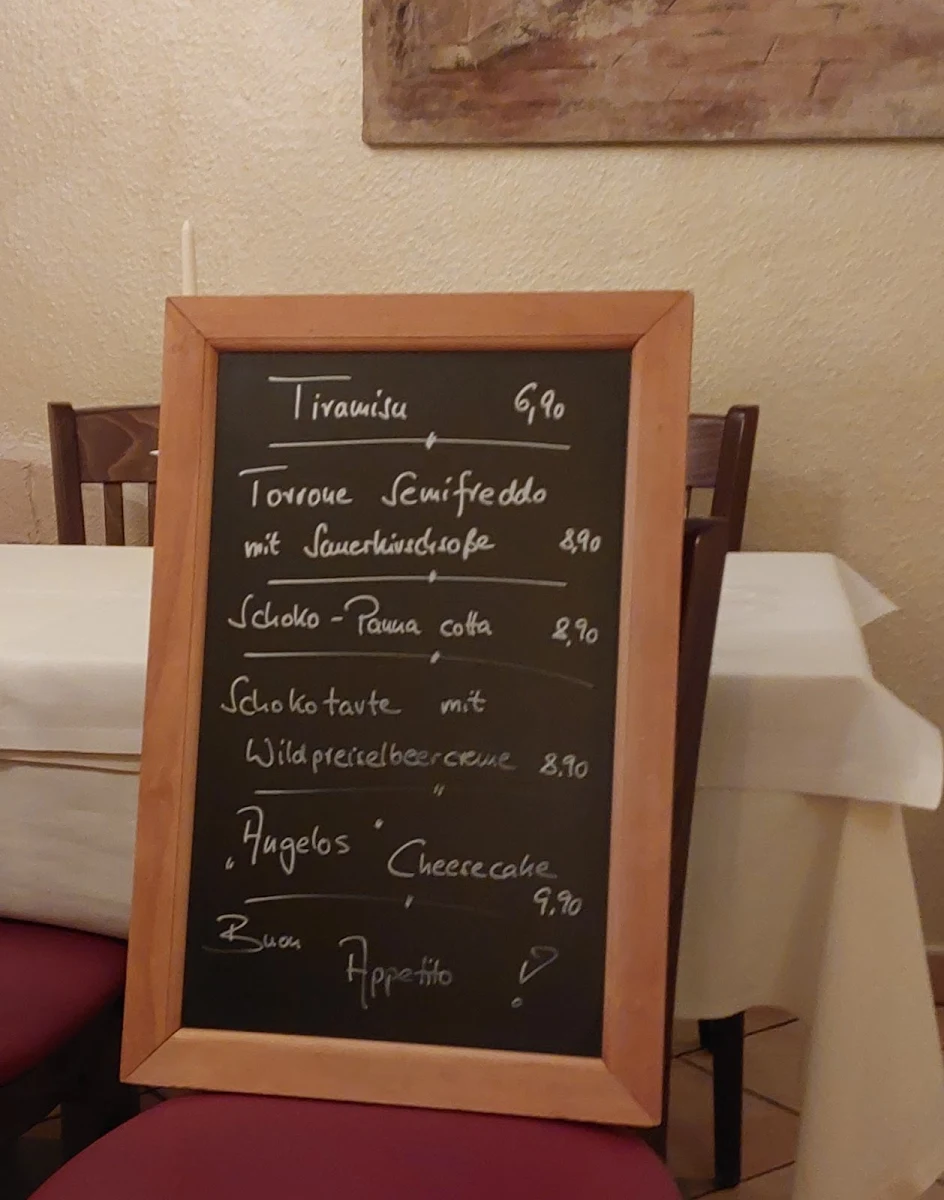 Tiramisu 6,90
Torrone Semifreddo
mit Sauerkirschsoße 8,90
Schoko-Panna cotta 8,90
Schokotarte mit
Wildpreiselbeercreme 8.90
„Angelos“ Cheesecake
9.90
Buon
Appetito !